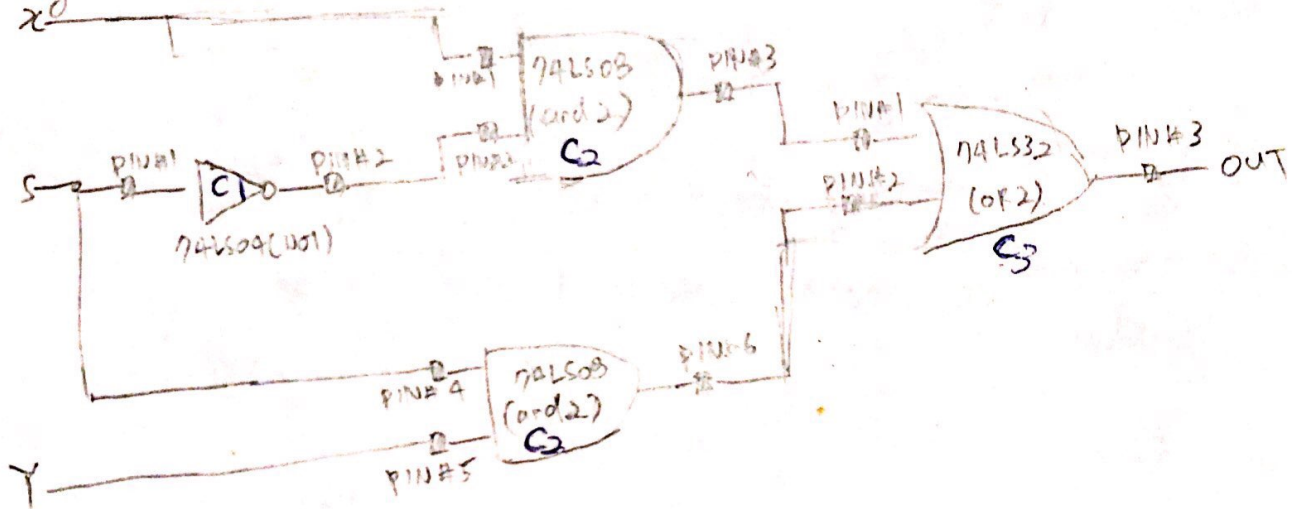 x
PIN#1
74LS08
(and 2)
C2
PIN#3
PIN#2
S
PIN#1
C1
PIN#2
74LS04(NOT)
PIN#1
PIN#2
74LS32
(OR2)
C3
PIN#3
OUT
PIN#4
74LS08
(and2)
C2
PIN#6
Y
PIN#5